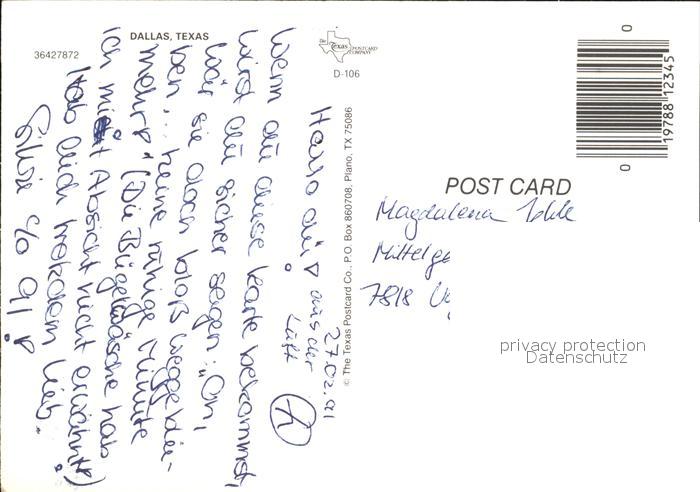 DALLAS, TEXAS
36427872
The Texas POSTCARD COMPANY
D-106
© The Texas Postcard Co., P.O. Box 860708, Plano, TX 75086
0
19788 12345
0
POST CARD
Magdalena
Mittelge
7818
privacy protection
Datenschutz
27.02.91
aus der Luft
Hallo du!
Wenn du diese Karte bekommst,
wirst du sicher sagen: "Oh,
wär sie doch bloß weggeblie-
ben... keine ruhige Minute
mehr!" (Die Bügelwäsche hab
ich mit Absicht nicht erwähnt!)
Hab dich trotzdem lieb.
c/o